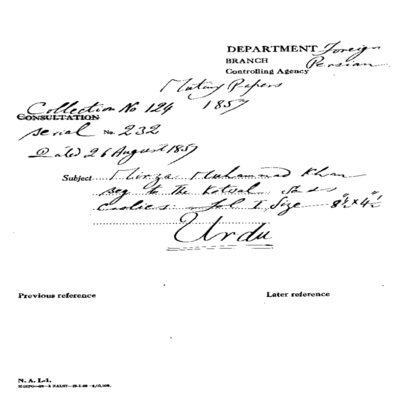 DEPARTMENT Foreign
BRANCH Persian
Controlling Agency
Mutiny Papers
Collection No 124 1857
CONSULTATION
Serial No. 232
Dated 26 August 1857
Subject Mirza Muhammad Khan
to the Kotwal
Coolies. fol 1, Size 8½"×4½"
Urdu
Previous reference
Later reference
N. A. I.-1.